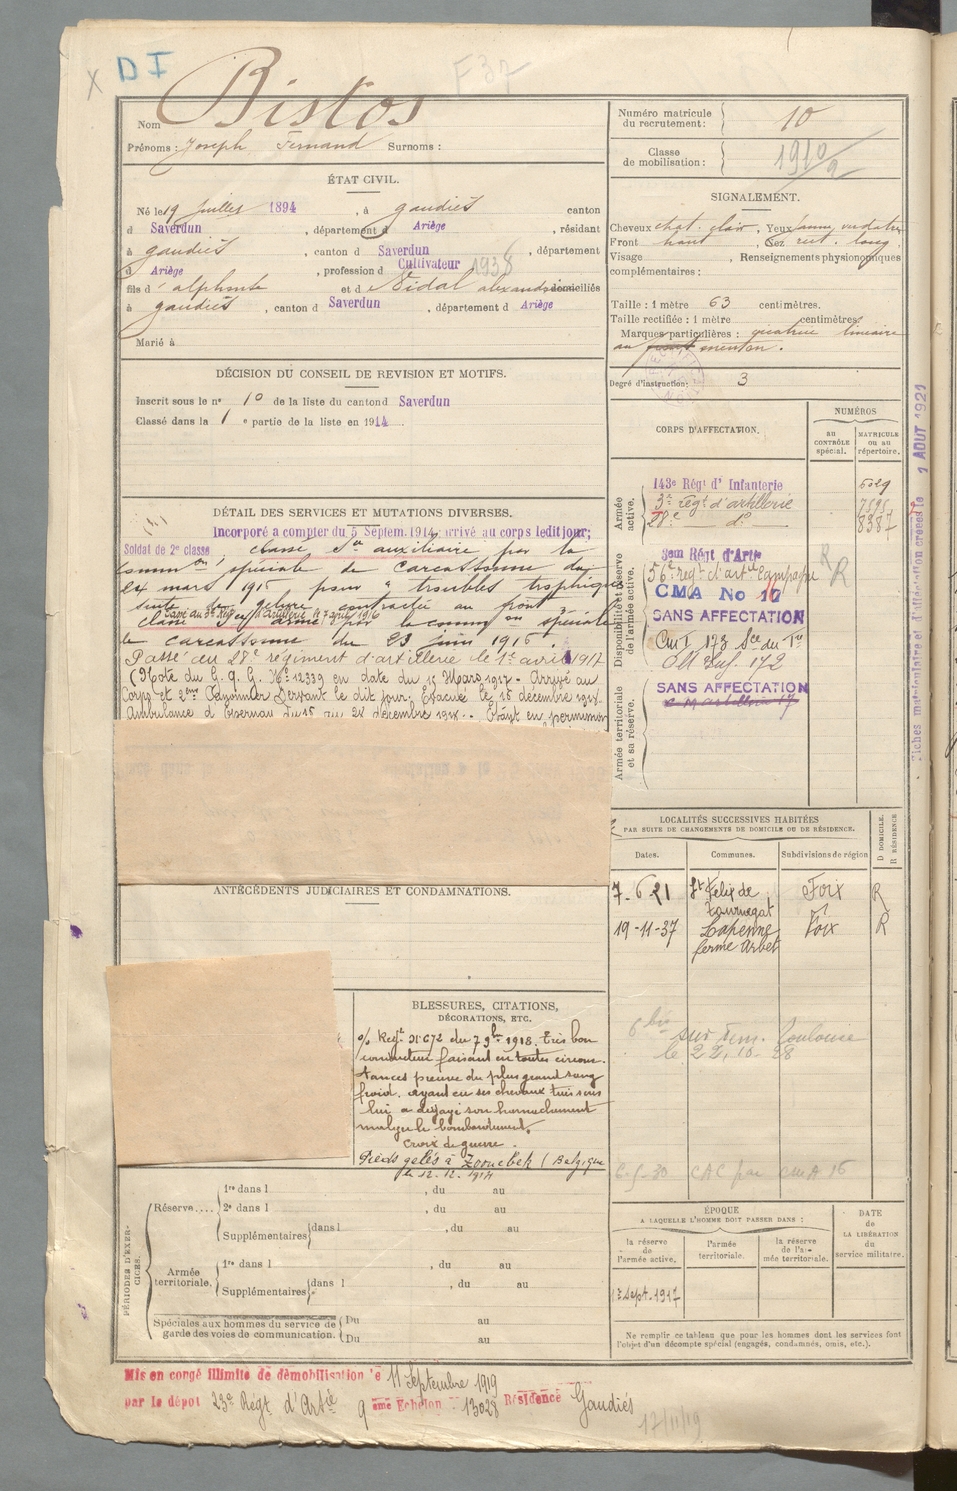 D I
F 37
Nom Bistos
Prénoms : Joseph Fernand Surnoms :
ÉTAT CIVIL.
Né le 19 juillet 1894, à gaudiès canton
d Saverdun, département d Ariège, résidant
à gaudiès, canton d Saverdun, département
d Ariège, profession d Cultivateur 1938
fils d' alphonse et d Vidal domiciliés
à gaudiès, canton d Saverdun, département d Ariège
Marié à
DÉCISION DU CONSEIL DE REVISION ET MOTIFS.
Inscrit sous le n° 10 de la liste du canton d Saverdun
Classé dans la 1 e partie de la liste en 1914
DÉTAIL DES SERVICES ET MUTATIONS DIVERSES.
Incorporé a compter du 5 Septem. 1914, arrivé au corps ledit jour;
Soldat de 2e classe, classé Sce auxiliaire par la
Common spéciale de Carcassonne du
24 mars 1915 pour " troubles trophiques
suite de gelure contractée au front
Passé au 3e Rég d'Artillerie le 7 avril 1916
classé armé par la common spéciale
de Carcassonne du 23 juin 1916.
Passé au 28e régiment d'artillerie le 1er avril 1917
(Note du G.Q.G. No 12339 en date du 15 Mars 1917 - Arrivé au
Corps et 2eme Canonnier Servant le dit jour. Évacué le 15 décembre 1918.
Ambulance d'Épernay du 15 au 28 décembre 1918. Étant en permission
ANTÉCÉDENTS JUDICIAIRES ET CONDAMNATIONS.
BLESSURES, CITATIONS,
DÉCORATIONS, ETC.
o/ Regt N° 672 du 7 9bre 1918. Très bon
conducteur faisant en toutes circons-
tances preuve du plus grand sang
froid. Ayant eu ses chevaux tués sous
lui a dégagé son harnachement
malgré le bombardement.
Croix de guerre.
Pieds gelés à Zonnebek (Belgique
le 12.12.1914
PÉRIODES D'EXERCICES.
Réserve.... 1re dans l , du au
2e dans l , du au
Supplémentaires dans l , du au
Armée territoriale. 1re dans l , du au
Supplémentaires dans l , du au
Spéciales aux hommes du service de garde des voies de communication. Du au
Du au
Mis en congé illimité de démobilisation le 11 Septembre 1919
par le dépôt 23e Régt d'Artie 9 eme Echelon 13028 Résidence Gaudiés
17/11/19
Numéro matricule du recrutement : 10
Classe de mobilisation : 1910
SIGNALEMENT.
Cheveux chat. clair, Yeux jaun. verdatre
Front haut, Nez rect. long.
Visage , Renseignements physionomiques
complémentaires :
Taille : 1 mètre 63 centimètres.
Taille rectifiée : 1 mètre centimètres.
Marques particulières : cicatrice linéaire
au menton.
Degré d'instruction : 3
CORPS D'AFFECTATION.
NUMÉROS
AU CONTRÔLE spécial.
MATRICULE ou au répertoire.
Armée active.
143e Régt d' Infanterie 5029
3e régt d'artillerie 7595
28e do 8387
Disponibilité et réserve de l'armée active.
3em Régt d'Artie
56e régt d'artie Campagne
CMA No 16
SANS AFFECTATION
Armée territoriale et sa réserve.
SANS AFFECTATION
Fiches matriculaire et d'affectation créées le 1 AOUT 1921
LOCALITÉS SUCCESSIVES HABITÉES
PAR SUITE DE CHANGEMENTS DE DOMICILE OU DE RÉSIDENCE.
Dates. Communes. Subdivisions de région D DOMICILE. R RÉSIDENCE
7-6 21 St Felix de Tournegat Foix R
19-11-37 Lapenne ferme Arbet Foix R
6 bis sur dem. Toulouse
le 22.10.28
6-5-30 CAC par CMA 16
ÉPOQUE
A LAQUELLE L'HOMME DOIT PASSER DANS :
la réserve de l'armée active.
l'armée territoriale.
la réserve de l'armée territoriale.
DATE de LA LIBÉRATION du service militaire.
1er Sept. 1917
Ne remplir ce tableau que pour les hommes dont les services font
l'objet d'un décompte spécial (engagés, condamnés, omis, etc.).